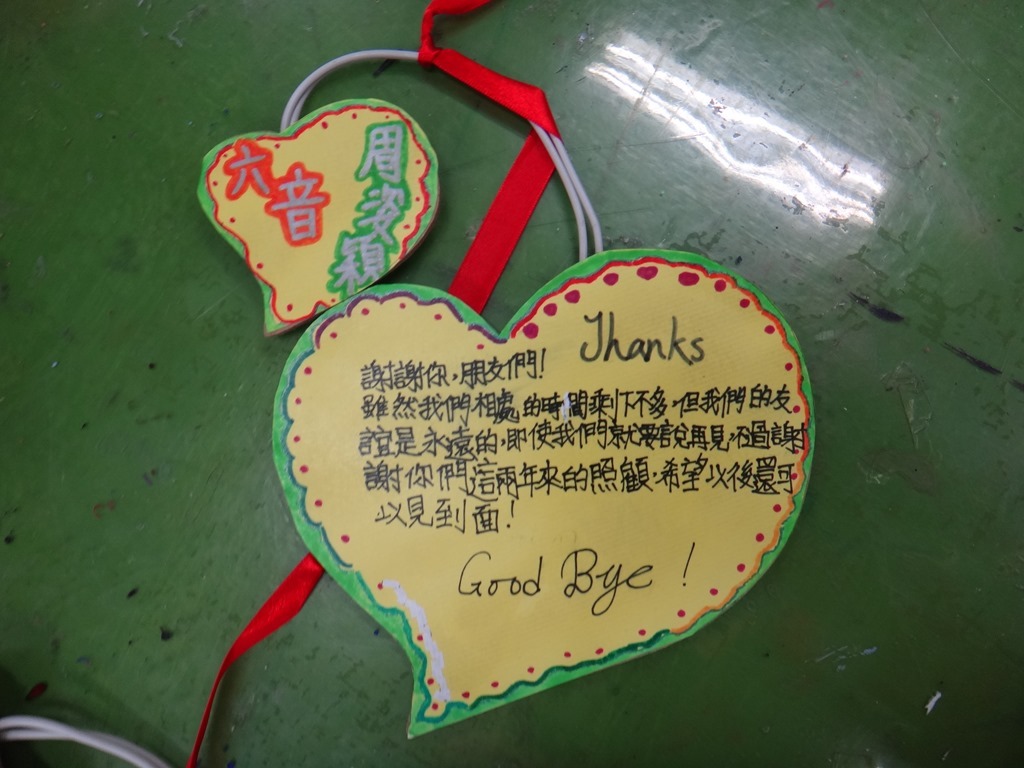 六音
周姿穎
Thanks
謝謝你，朋友們！
雖然我們相處的時間剩下不多，但我們的友
誼是永遠的，即使我們就要說再見，不過謝
謝你們這兩年來的照顧，希望以後還可
以見到面！
Good Bye !